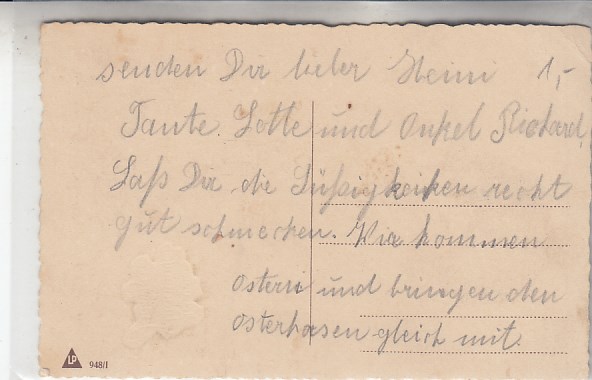 senden Dir lieber Heini 1,-
Tante Lotte und Onkel Richard,
Laß Dir die Süßigkeiten recht
gut schmecken. Wir kommen
ostern und bringen den
osterhasen gleich mit.
LP 948/I